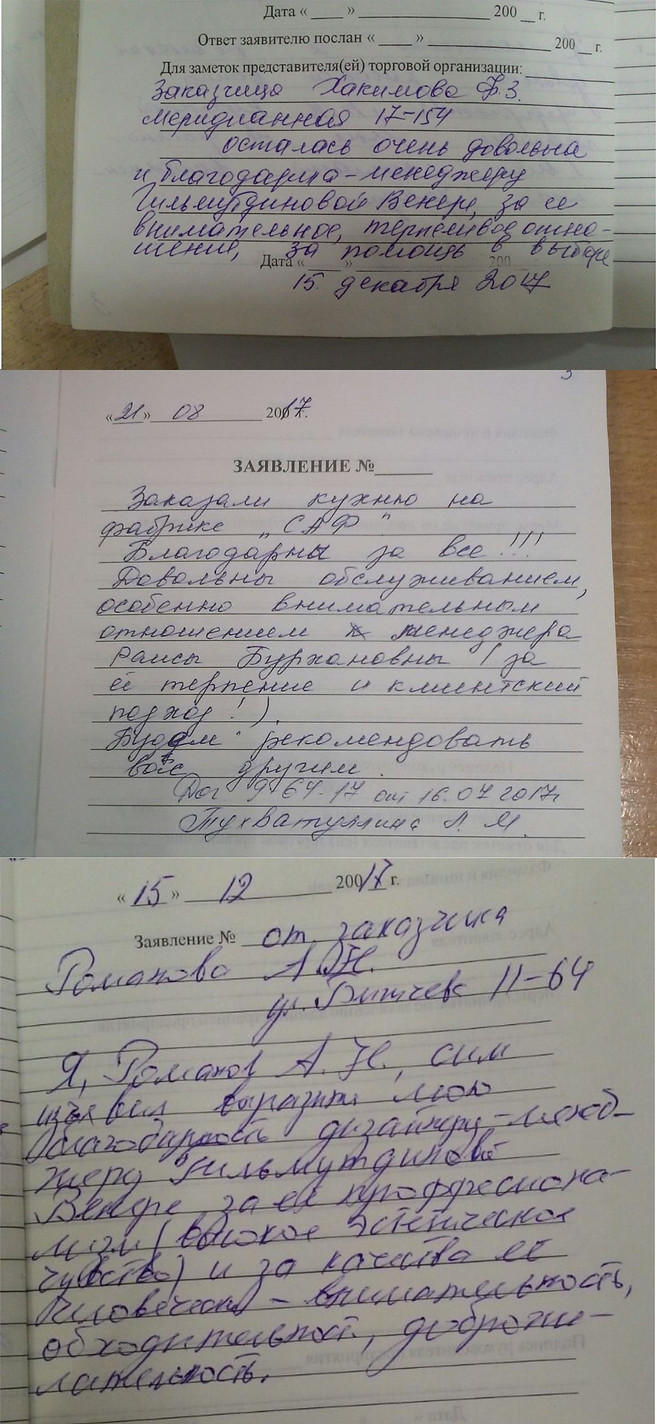 Дата « ____ » ____________ 200 __ г.
Ответ заявителю послан « ____ » ____________ 200 __ г.
Для заметок представителя(ей) торговой организации:
Заказчица Хакимова Ф.З.
Меридианная 17-154
осталась очень довольна
и благодарна - менеджеру
Гильмутдиновой Венере, за ее
внимательное, терпеливое отно-
шение, за помощь в выборе
Дата « » 200
15 декабря 2017
3
«21» 08 2017г.
ЗАЯВЛЕНИЕ №______
Заказали кухню на
фабрике "САФ"
Благодарны за все!!!
Довольны обслуживанием,
особенно внимательным
отношением менеджера
Раисы Бурхановны (за
её терпение и клиентский
подход!).
Будем рекомендовать
вас другим.
Дог. 964-17 от 16.07.2017г
Тухватуллина Л. М.
«15» 12 20017 г.
Заявление № от заказчика
Романова А.Н.
ул. 11-64
Я, Романов А.Н., сим
изъявил выразить мою
благодарность дизайнеру-менед-
жеру Гильмутдиновой
Венере за её профессиона-
лизм (высокое эстетическое
чувство) и за качества её
человеческие - внимательность,
обходительность, доброже-
лательность.